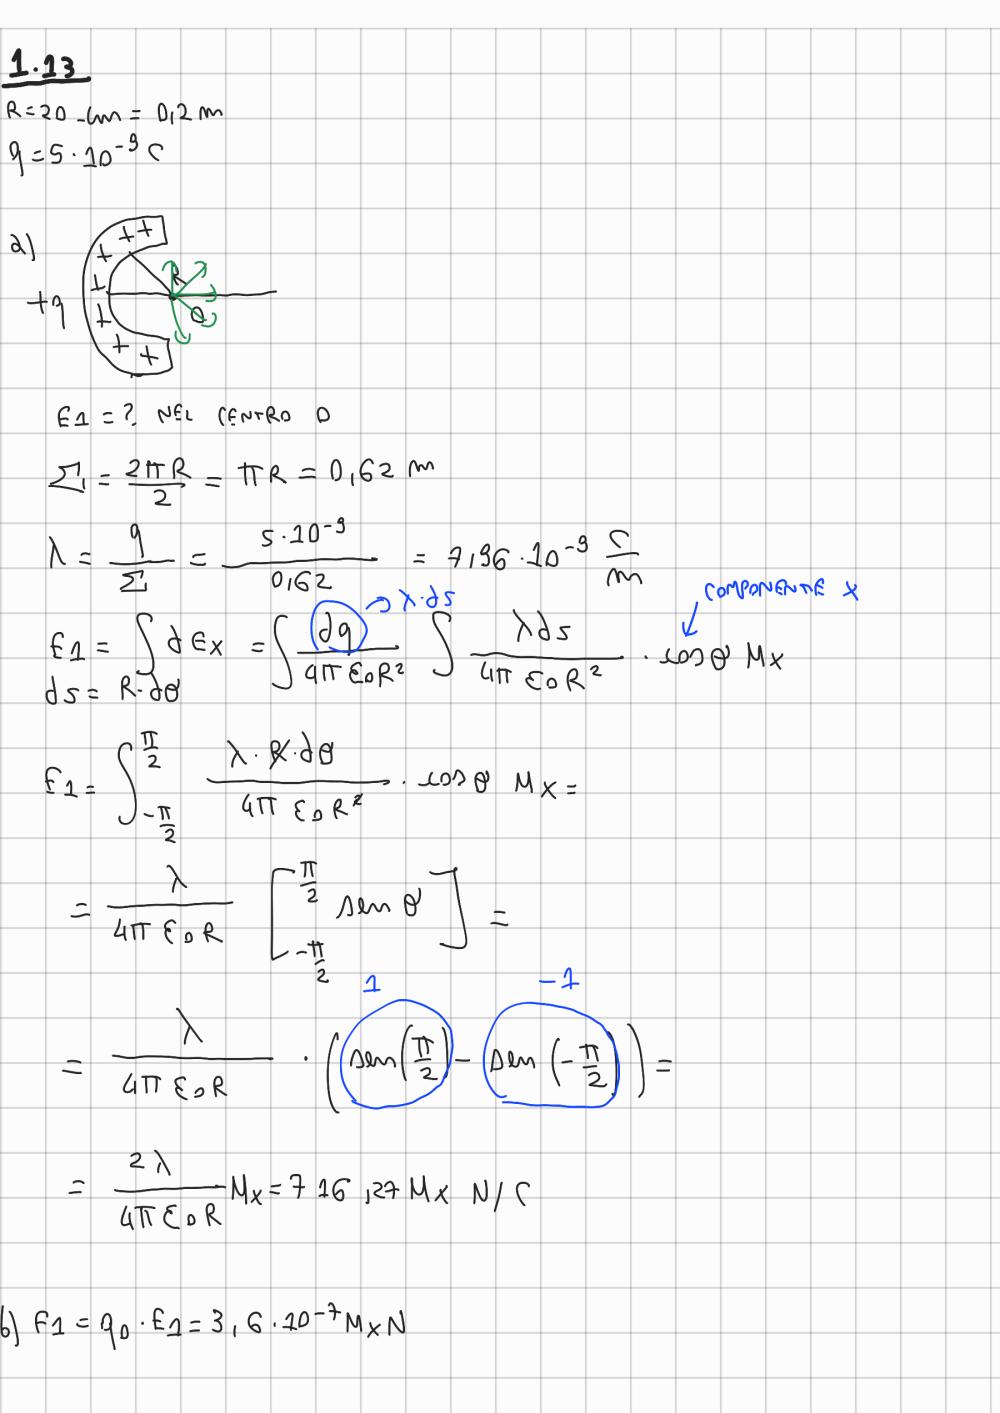 1.13
R = 20 cm = 0,2 m
q = 5 · 10⁻⁹ C
a)
+ + + + + + + +
+q
R
O
E1 = ? NEL CENTRO O
Σ = 2πR/2 = πR = 0,62 m
λ = q/Σ = 5·10⁻⁹/0,62 = 7,96 · 10⁻⁹ C/m
→ λ·ds
COMPONENTE X
E1 = ∫ dEx = ∫ dq/4πε₀R² ∫ λds/4πε₀R² · cosθ Mx
ds = R·dθ
E1 = ∫_{-π/2}^{π/2} λ·R·dθ/4πε₀R² · cosθ Mx =
= λ/4πε₀R [_{-π/2}^{π/2} senθ] =
1 -1
= λ/4πε₀R · (sen(π/2) - sen(-π/2)) =
= 2λ/4πε₀R Mx = 716,27 Mx N/C
b) F1 = q₀ · E1 = 3,6 · 10⁻⁷ Mx N